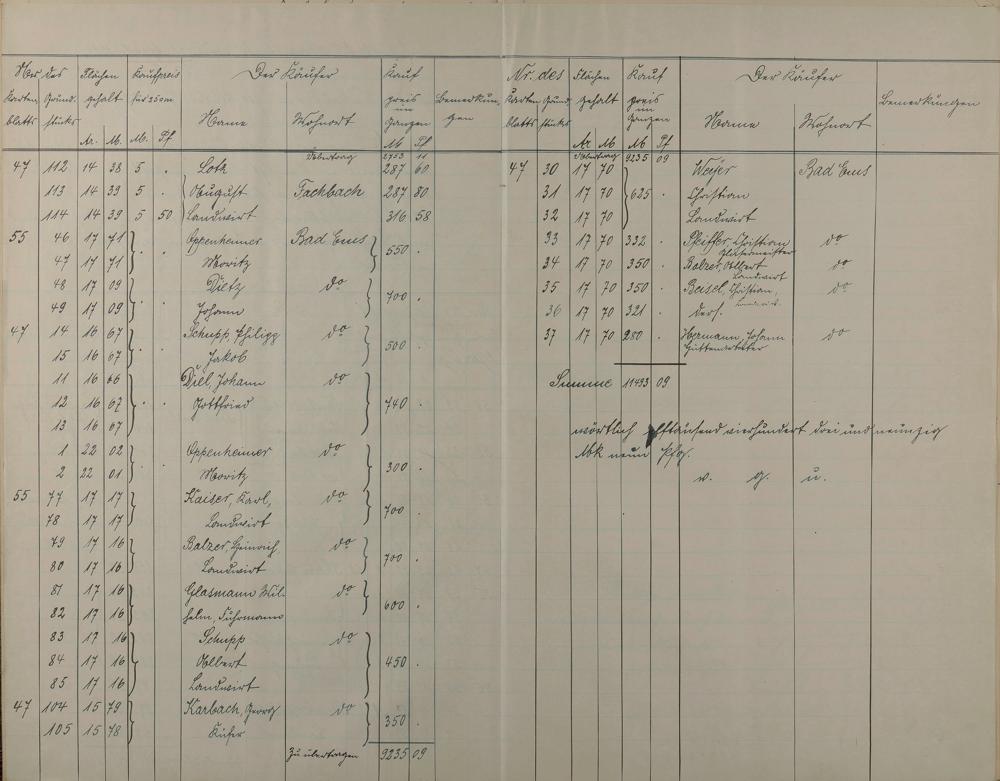 Nr. des Flächen Kaufpreis Der Käufer Kauf
Karten Grund- gehalt für 25 qm preis Bemerkun-
blatts stücks Name Wohnort im Ganzen gen
Ar. M. M. Pf M Pf
Übertrag 2753 11
47 112 14 38 5 . Loth 287 60
113 14 39 5 . August Fachbach 287 80
114 14 39 5 50 Landwirt 316 58
55 46 17 71 Oppenheimer Bad Ems
47 17 71 . . Moritz 550 .
48 17 09 Dietz do
49 17 09 . . Johann 700 .
47 14 16 67 Schupp, Philipp do
15 16 67 . . Jakob 500 .
11 16 66 Diel, Johann do
12 16 67 . . Gottfried 740 .
13 16 67
1 22 02 Oppenheimer do
2 22 01 . . Moritz 300 .
55 77 17 17 Kaiser, Karl, do
78 17 17 Landwirt 700 .
79 17 16 Balzer, Heinrich, do
80 17 16 Landwirt 700 .
81 17 16 Glasmann Wil- do
82 17 16 helm, Fuhrmann 600 .
83 17 16 Schupp do
84 17 16 Albert 450 .
85 17 16 Landwirt
47 104 15 79 Karbach, Georg do
105 15 78 Küfer 350 .
Zu übertragen 9235 09
Nr. des Flächen Kauf Der Käufer
Karten Grund- gehalt preis im Bemerkungen
blatts stücks Ganzen Name Wohnort
Ar M M Pf
Übertrag 9235 09
47 30 17 70 Weier Bad Ems
31 17 70 625 . Christian
32 17 70 Landwirt
33 17 70 332 . Pfeiffer, Christian do
Glasermeister
34 17 70 350 . Balzer, Albert do
Landwirt
35 17 70 350 . Beisel, Christian, do
Landwirt
36 17 70 321 . ders.
37 17 70 280 . Hermann, Johann do
Hüttenarbeiter
Summe 11493 09
wörtlich elftausend vierhundert drei und neunzig
Mk neun Pfg.
v. g. u.